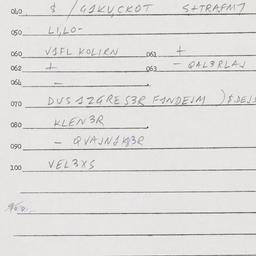 040 $ / G1KUCKOT S+TRAFM1
050 LI,LO-
060 V1FL KOLIRN 061 +
062 + 063 - QAL3RLAJ
064 -
070 DUS 1ZGRES3R F1NDEJM
080 KLEN3R
090 - QVAJN
100 VEL3XS